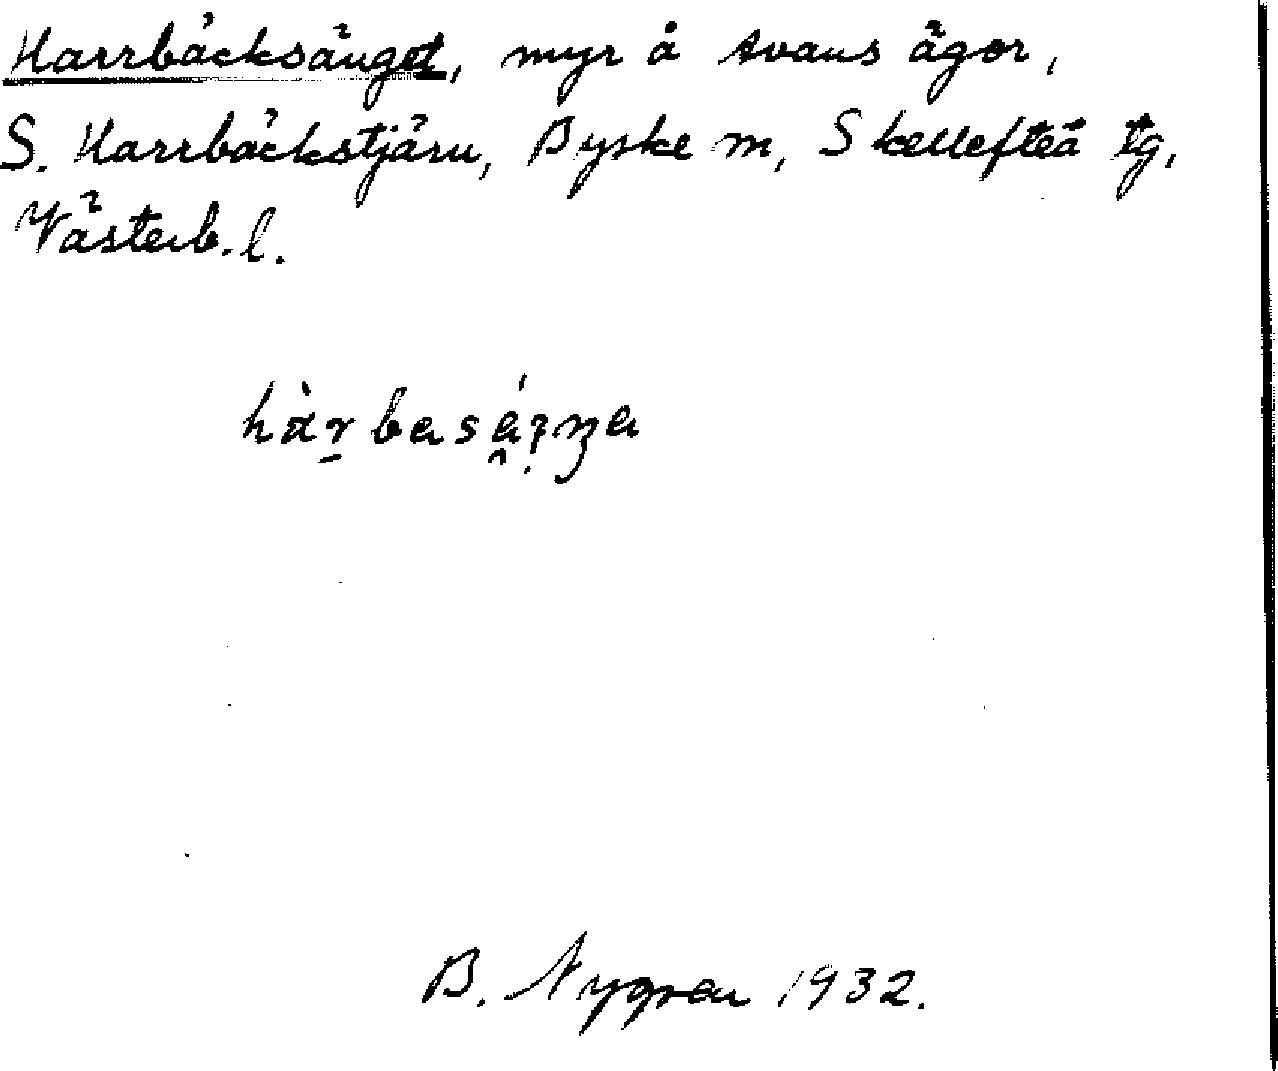 Harrbäcksänget, myr å Avans ägor,
S. Harrbäckstjärn, Byske sn, Skellefteå tg,
Västerb. l.
B. Nygren 1932.